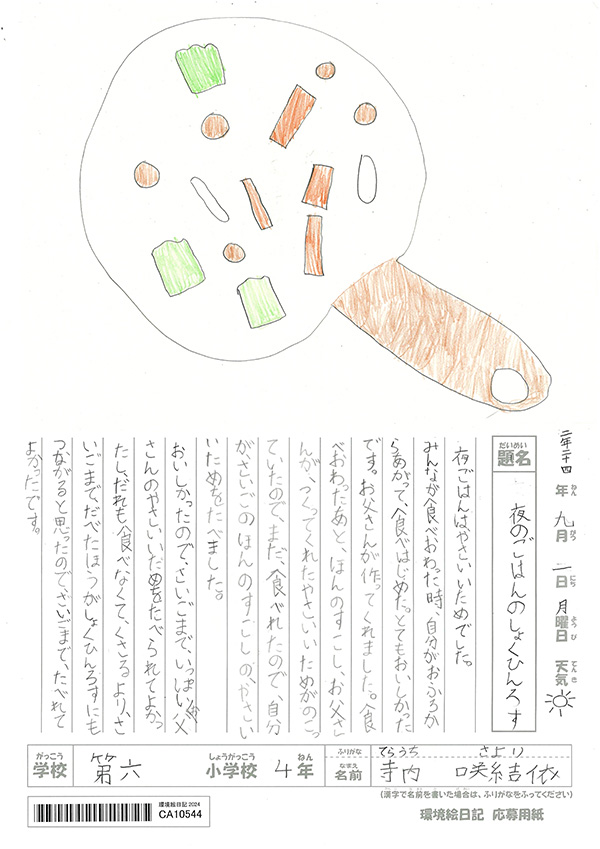 二年二十四年九月一日月曜日 天気
題名 夜のごはんのしょくひんろす
夜ごはんは、やさいいためでした。
みんなが食べおわった時、自分がおふろか
らあがって、食べはじめた。とてもおいしかった
です。お父さんが作ってくれました。食
べおわったあと、ほんのすこし、お父さ
んが、つくってくれたやさいいためがのこっ
ていたので、まだ、食べれたので、自分
がさいごのほんのすこしの、やさい
いためをたべました。
おいしかったので、さいごまで、いっぱい、お父
さんのやさいいだめをたべられてよかっ
たし、だれも食べなくて、くさるより、さ
いごまで、だべたほうがしょくひんろすにも
つながると思ったので、ざいごまで、たべれて
よかったです。
学校 第六 小学校 4年 名前 寺内 咲結依
がっこう しょうがっこう ねん ふりがな なまえ てらうち さより
(漢字で名前を書いた場合は、ふりがなをふってください)
環境絵日記 2024
CA10544
環境絵日記 応募用紙